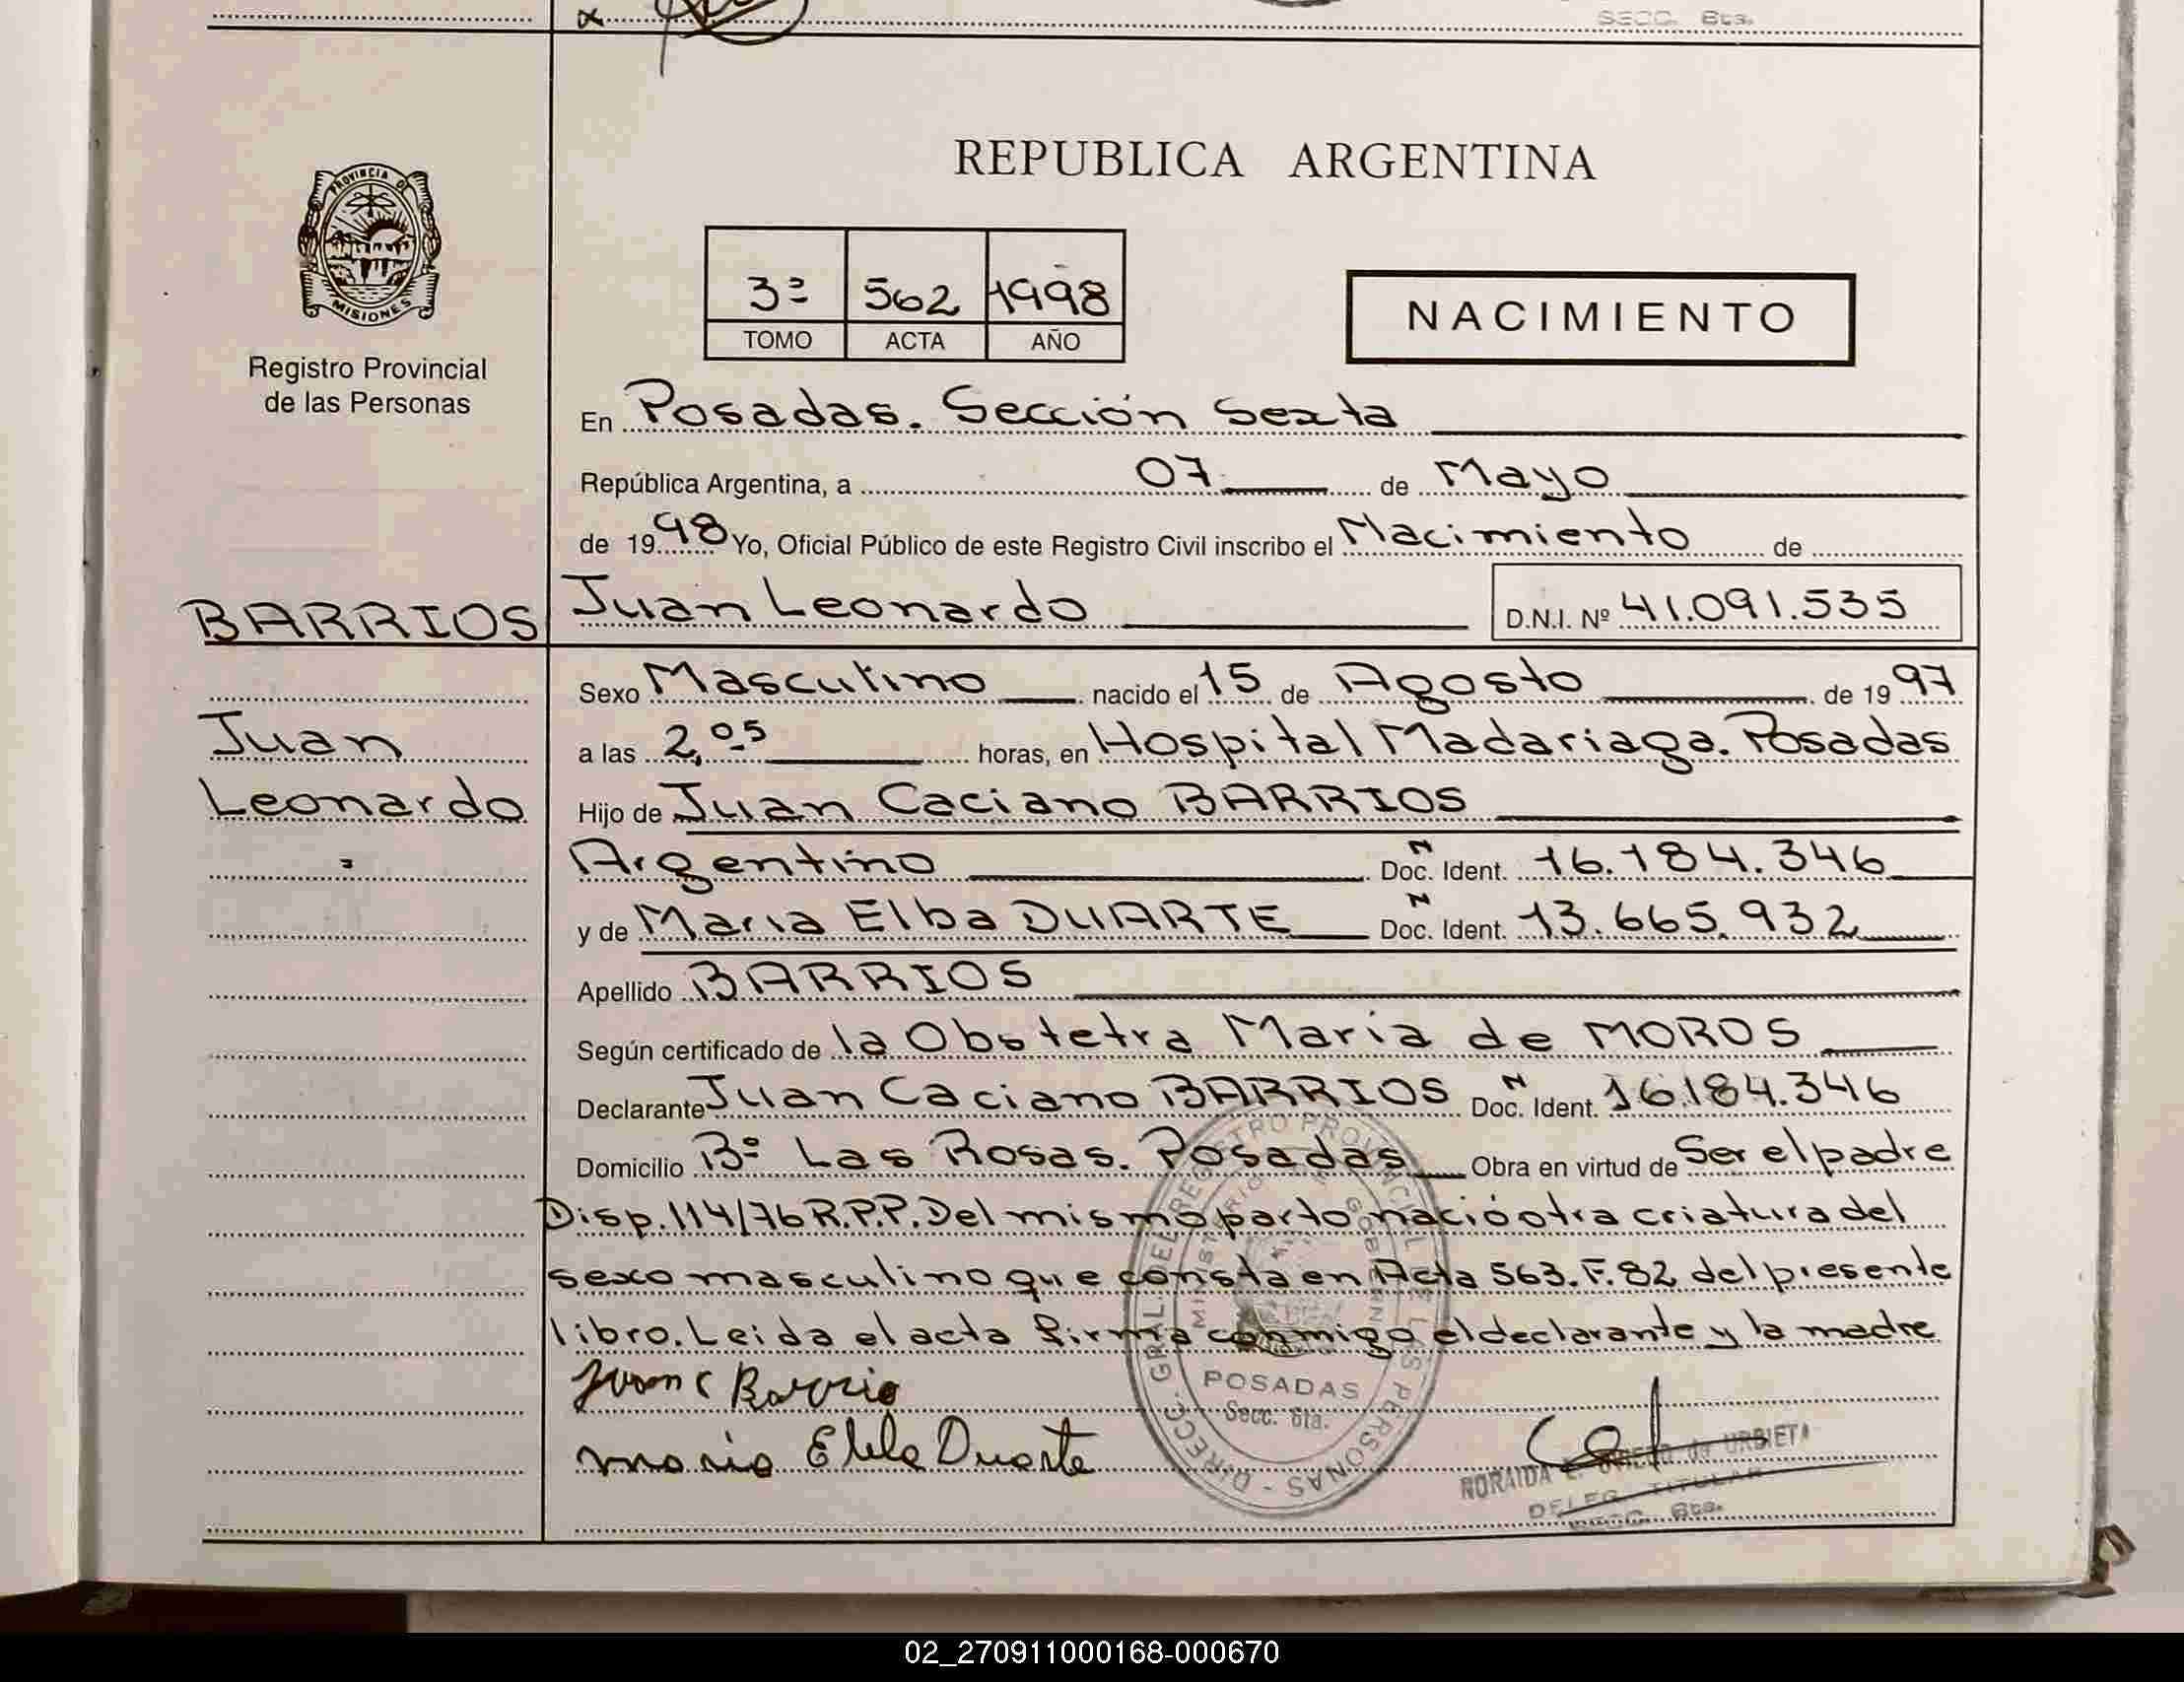 SECC. 6ta.
PROVINCIA DE
MISIONES
Registro Provincial
de las Personas
REPUBLICA ARGENTINA
3º 562 1998
TOMO ACTA AÑO
NACIMIENTO
En Posadas. Sección Sexta
República Argentina, a 07 de Mayo
de 1998 Yo, Oficial Público de este Registro Civil inscribo el Nacimiento de
BARRIOS Juan Leonardo D.N.I. Nº 41.091.535
Sexo Masculino nacido el 15 de Agosto de 1997
Juan a las 2,05 horas, en Hospital Madariaga. Posadas
Leonardo Hijo de Juan Caciano BARRIOS
Argentino N Doc. Ident. 16.184.346
y de Maria Elba DUARTE N Doc. Ident. 13.665.932
Apellido BARRIOS
Según certificado de la Obstetra Maria de MOROS
Declarante Juan Caciano BARRIOS N Doc. Ident. 16.184.346
Domicilio Bº Las Rosas. Posadas Obra en virtud de Ser el padre
Disp.114/76 R.P.P. Del mismo parto nació otra criatura del
sexo masculino que consta en Acta 563.F.82 del presente
libro. Leida el acta firma conmigo el declarante y la madre
Juan C Barrio
Maria Elba Duarte
DIRECC. GRAL. DEL REGISTRO PROVINCIAL DE LAS PERSONAS
MINISTERIO GOBIERNO
POSADAS
Secc. 6ta.
de URBIETA
DELEG. TITULAR
SECC. 6ta.
02_270911000168-000670